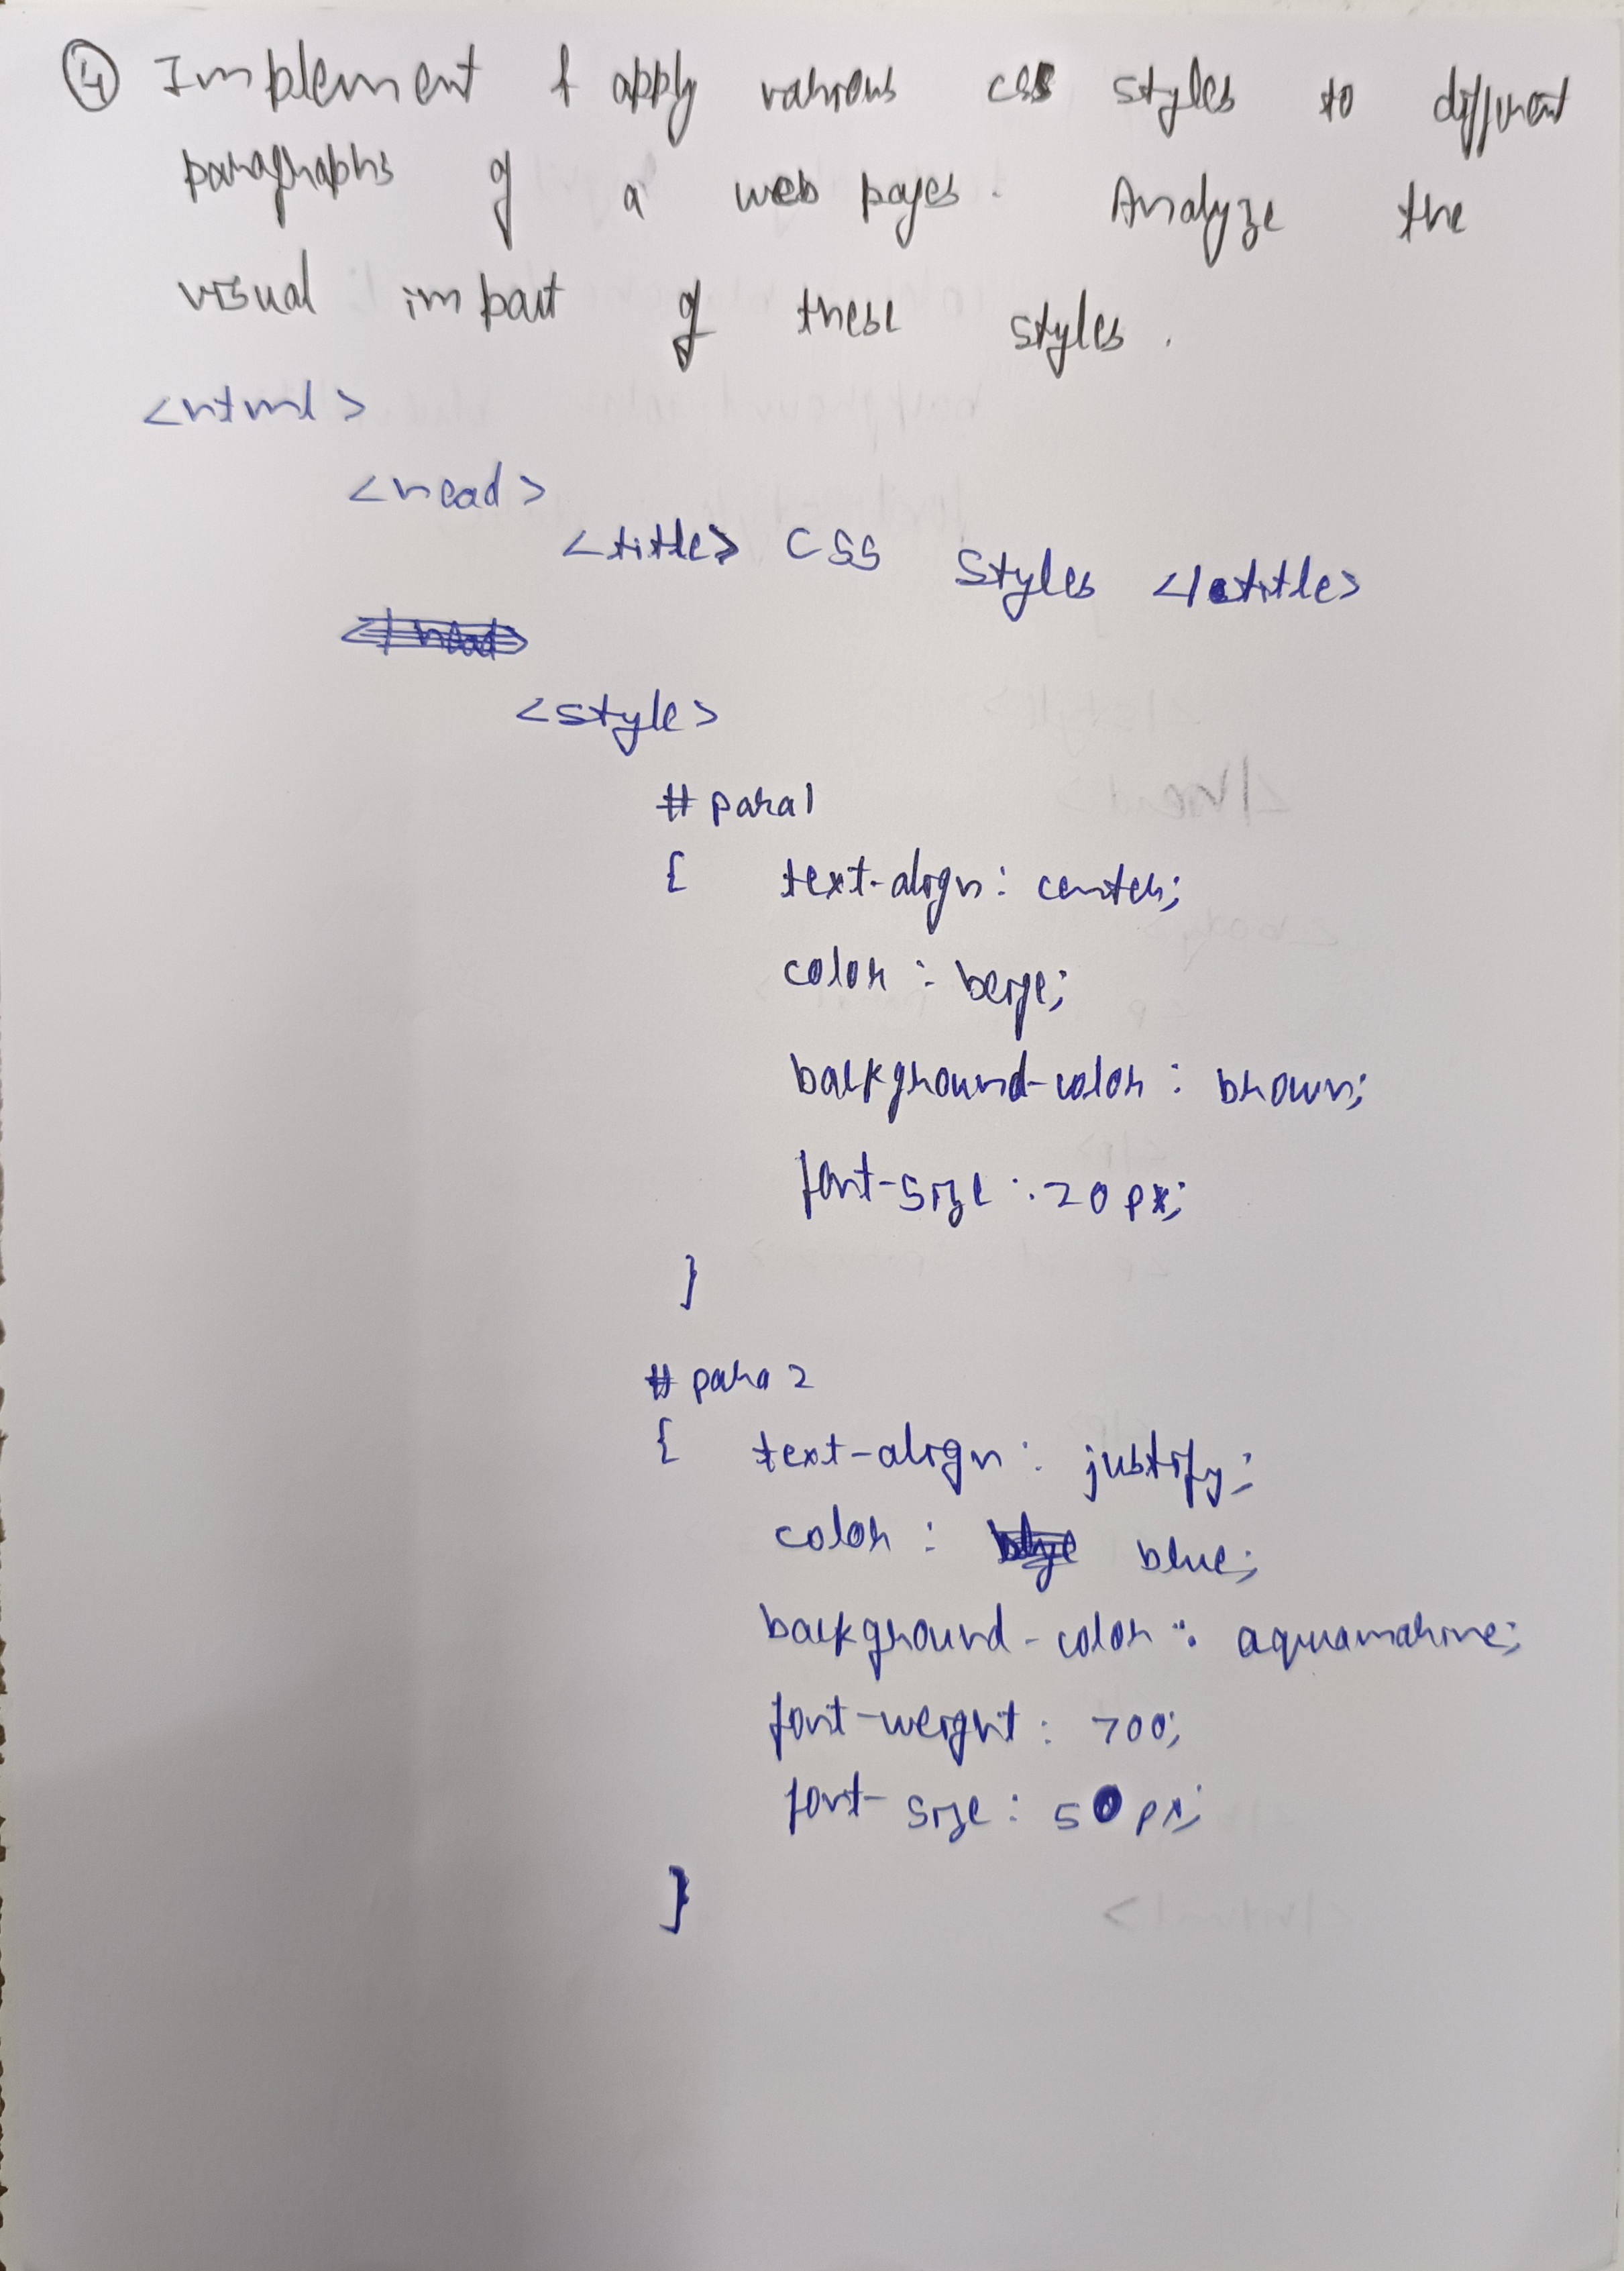 ④ Implement & apply various css styles to different
paragraphs of a web pages. Analyze the
visual impact of these styles.
<html>
<head>
<title> CSS Styles </title>
<style>
# para1
{ text-align: center;
color : beige;
background-color : brown;
font-size : 20px;
}
# para 2
{ text-align : justify;
color : blue;
background-color : aquamarine;
font-weight : 700;
font-size : 50px;
}